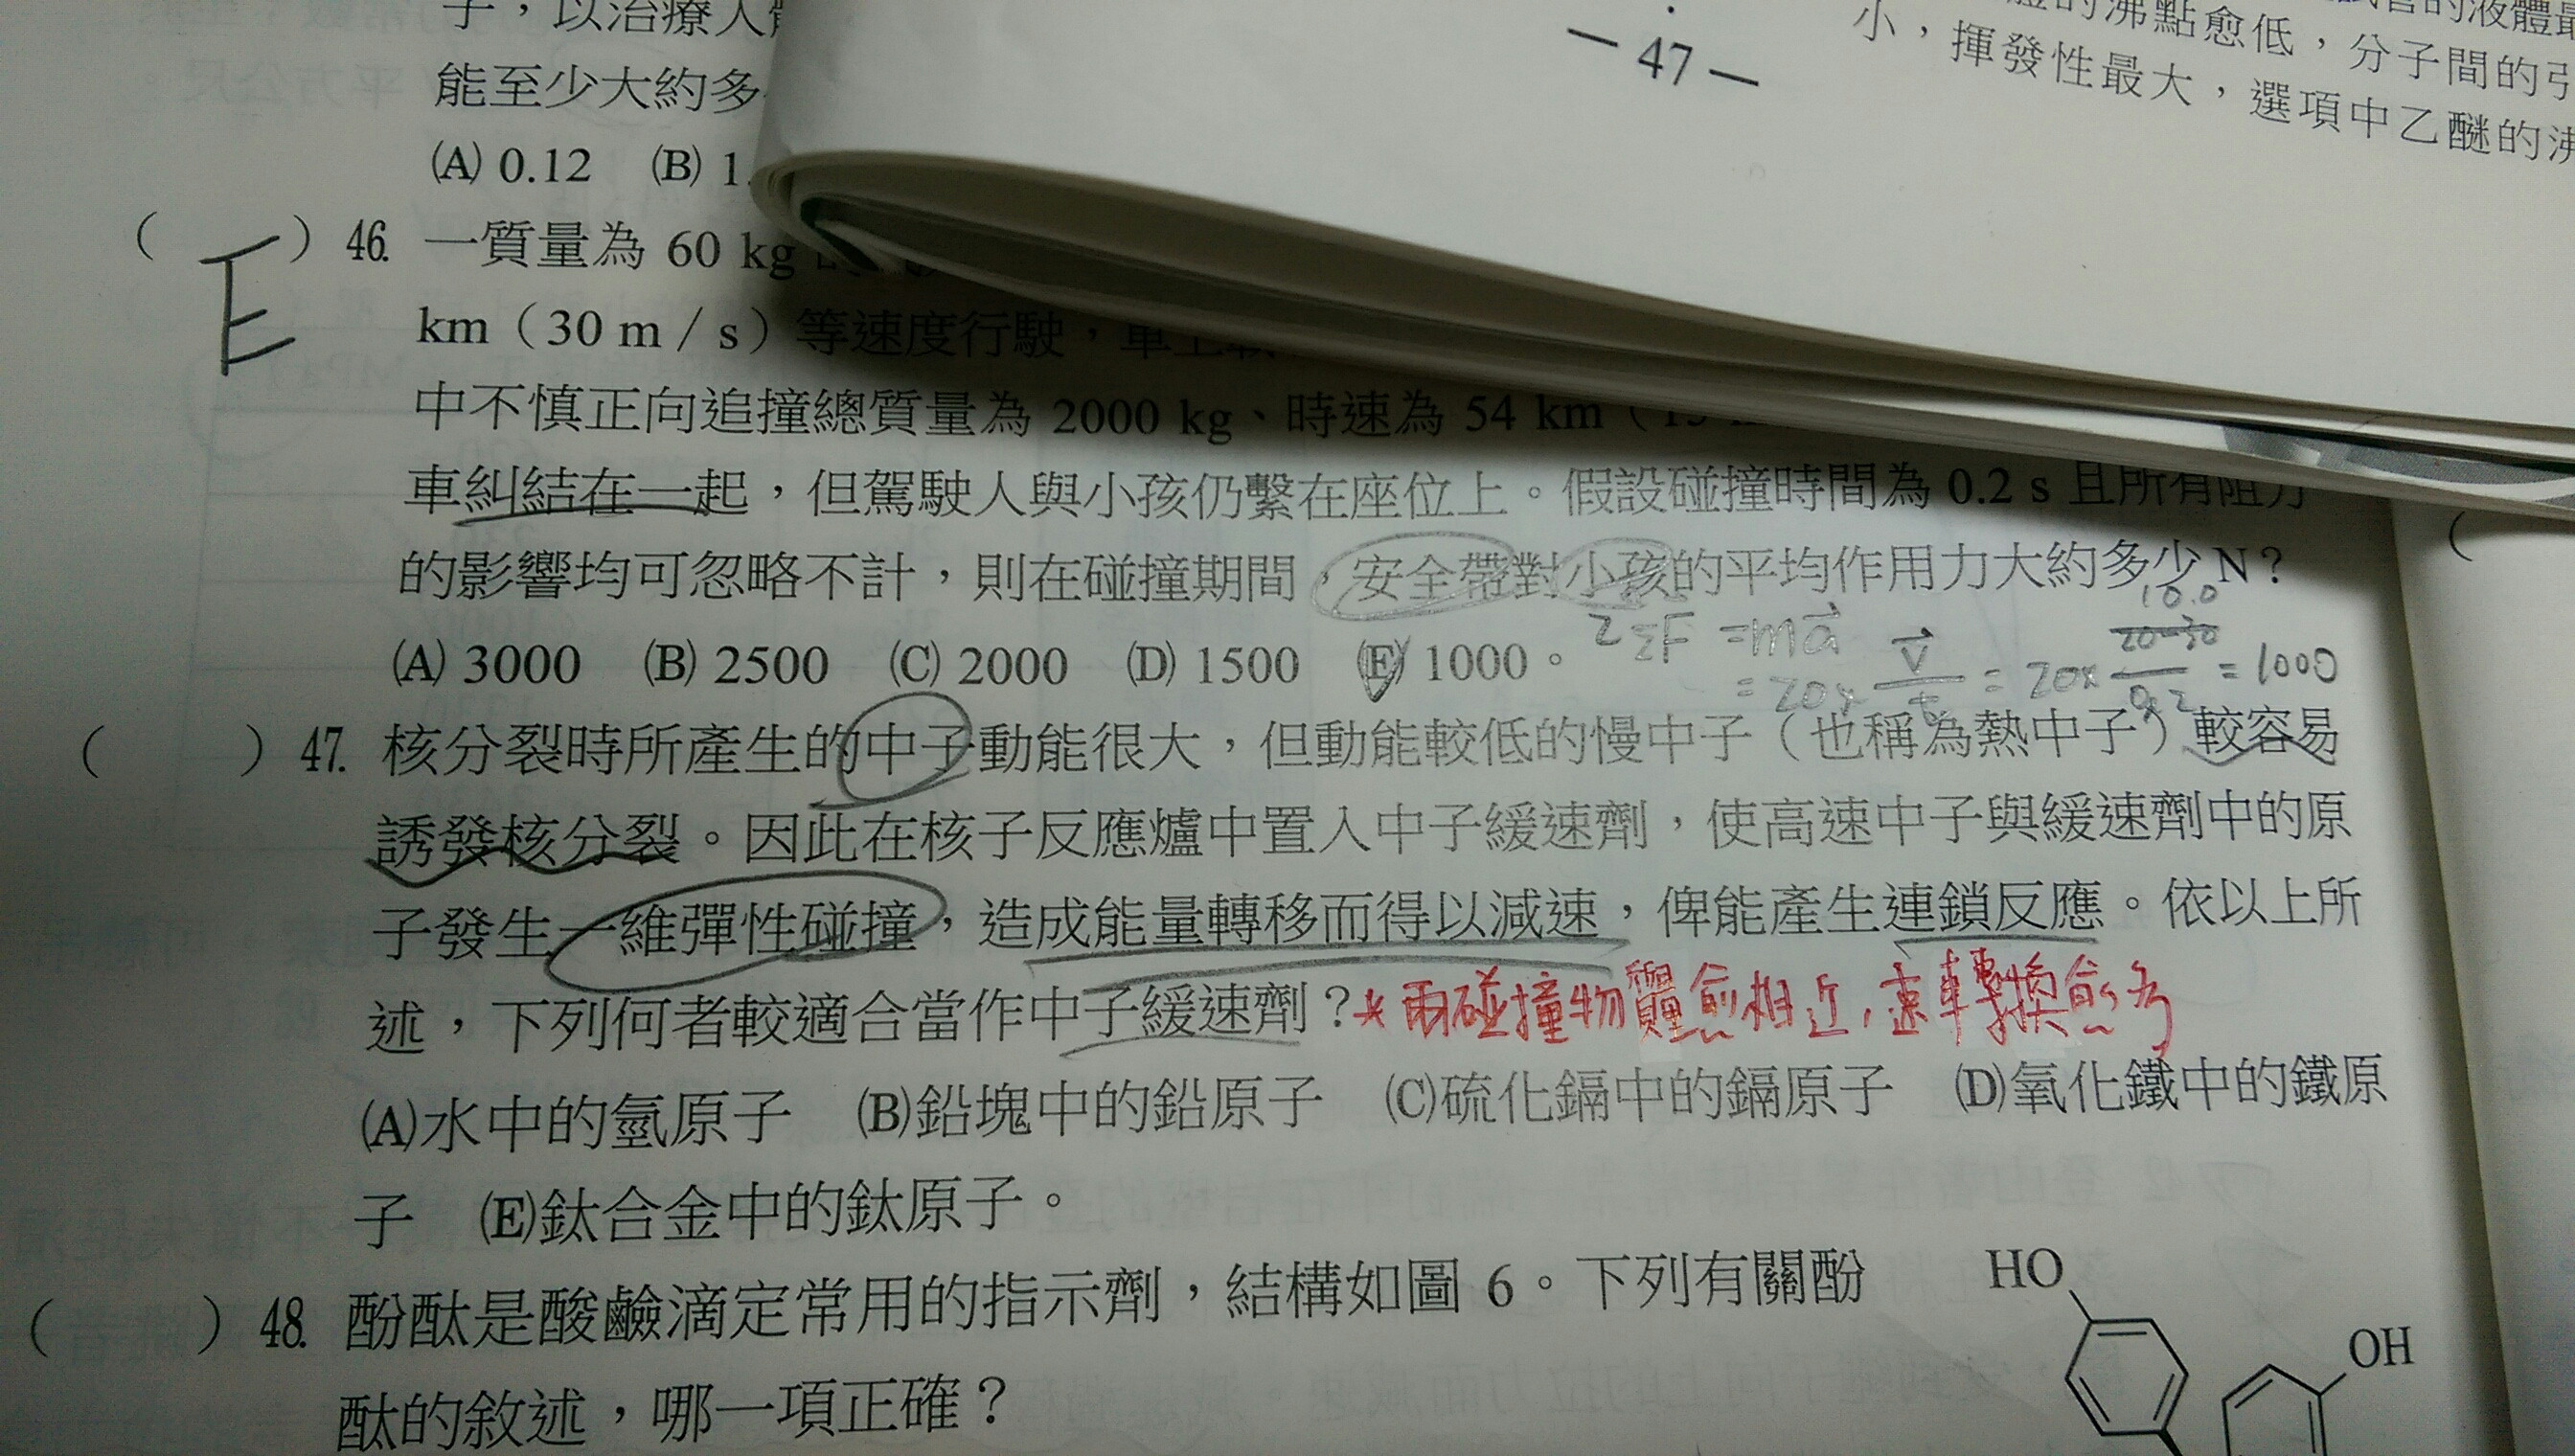 子，以治療人
能至少大約多
(A) 0.12 (B) 1.
( E ) 46. 一質量為 60 kg
km（30 m / s）等速度行駛，車上載
中不慎正向追撞總質量為 2000 kg、時速為 54 km（15
車糾結在一起，但駕駛人與小孩仍繫在座位上。假設碰撞時間為 0.2 s 且所有阻力
的影響均可忽略不計，則在碰撞期間，安全帶對小孩的平均作用力大約多少 N？
(A) 3000 (B) 2500 (C) 2000 (D) 1500 (E) 1000。
ΣF = ma
= 20× v/t = 20× 20-30/0.2 = 1000
10.0
( ) 47. 核分裂時所產生的中子動能很大，但動能較低的慢中子（也稱為熱中子）較容易
誘發核分裂。因此在核子反應爐中置入中子緩速劑，使高速中子與緩速劑中的原
子發生一維彈性碰撞，造成能量轉移而得以減速，俾能產生連鎖反應。依以上所
述，下列何者較適合當作中子緩速劑？
*兩碰撞物質量愈相近，速率轉換愈多
(A)水中的氫原子 (B)鉛塊中的鉛原子 (C)硫化鎘中的鎘原子 (D)氧化鐵中的鐵原
子 (E)鈦合金中的鈦原子。
( ) 48. 酚酞是酸鹼滴定常用的指示劑，結構如圖 6。下列有關酚
酞的敘述，哪一項正確？
HO
OH
— 47 —
的沸點愈低，分子間的引
小，揮發性最大，選項中乙醚的沸
的液體最